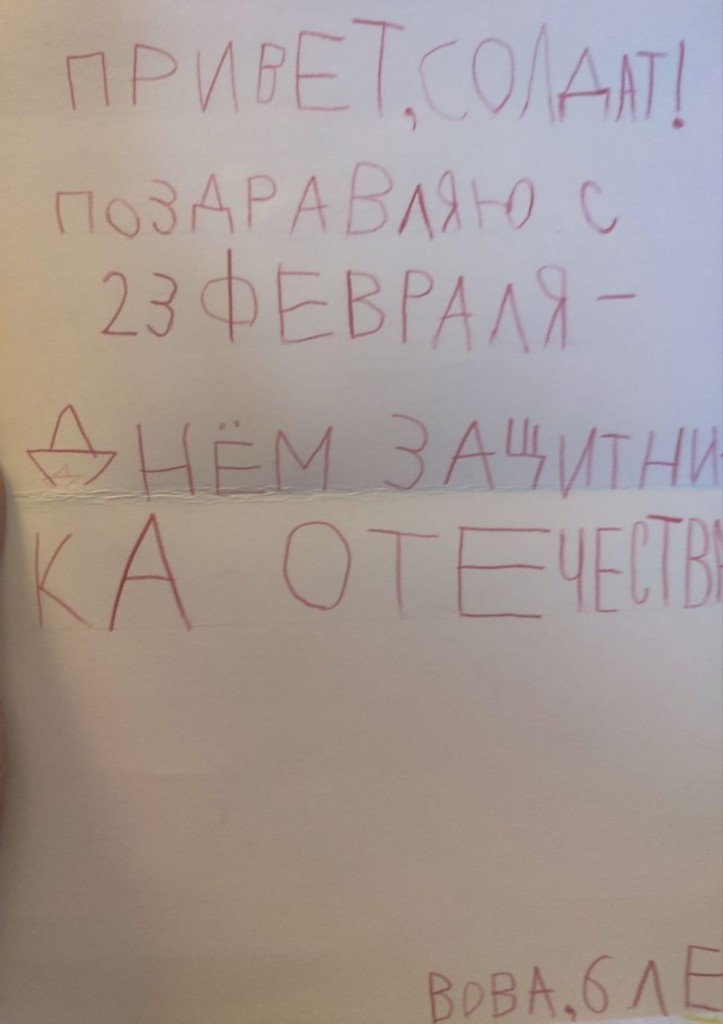 ПРИВЕТ, СОЛДАТ!
ПОЗДРАВЛЯЮ С
23 ФЕВРАЛЯ -
ДНЁМ ЗАЩИТНИ-
КА ОТЕЧЕСТВА
ВОВА, 6 ЛЕ